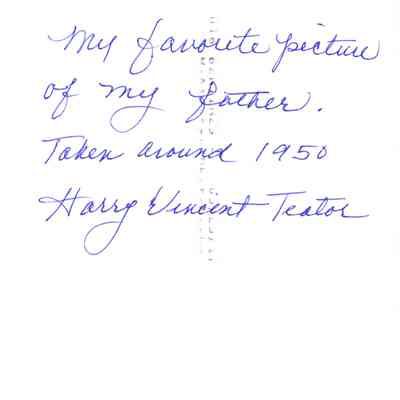 My favorite picture
of my father.
Taken around 1950
Harry Vincent Teator